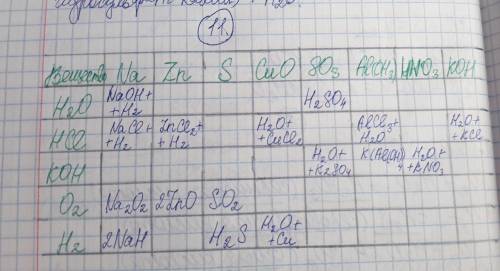 гидросульфат калия) + H₂O.
11.
Вещества Na Zn S CuO SO₃ Al(OH)₃ HNO₃ KOH
H₂O NaOH+ +H₂ H₂SO₄
HCl NaCl+ +H₂ ZnCl₂+ +H₂ H₂O+ +CuCl₂ AlCl₃+ H₂O H₂O+ +KCl
KOH H₂O+ +K₂SO₄ K(Al(OH)4 H₂O+ +KNO₃
O₂ Na₂O₂ 2ZnO SO₂
H₂ 2NaH H₂S H₂O+ +Cu